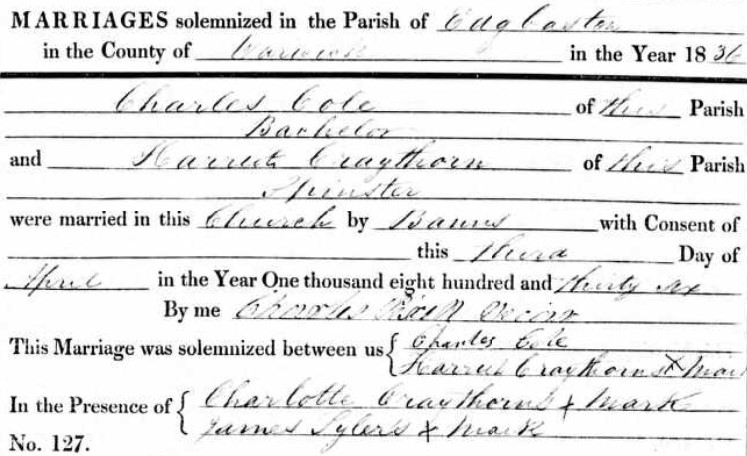 MARRIAGES solemnized in the Parish of Edgbaston
in the County of Warwick in the Year 1836
Charles Cole of this Parish
Bachelor
and Harriett Craythorn of this Parish
Spinster
were married in this Church by Banns with Consent of
this third Day of
April in the Year One thousand eight hundred and thirty six
By me Charles
This Marriage was solemnized between us { Charles Cole
Harriett Craythorns X Mark
In the Presence of { Charlotte Craythorns X Mark
James Sylers X Mark
No. 127.